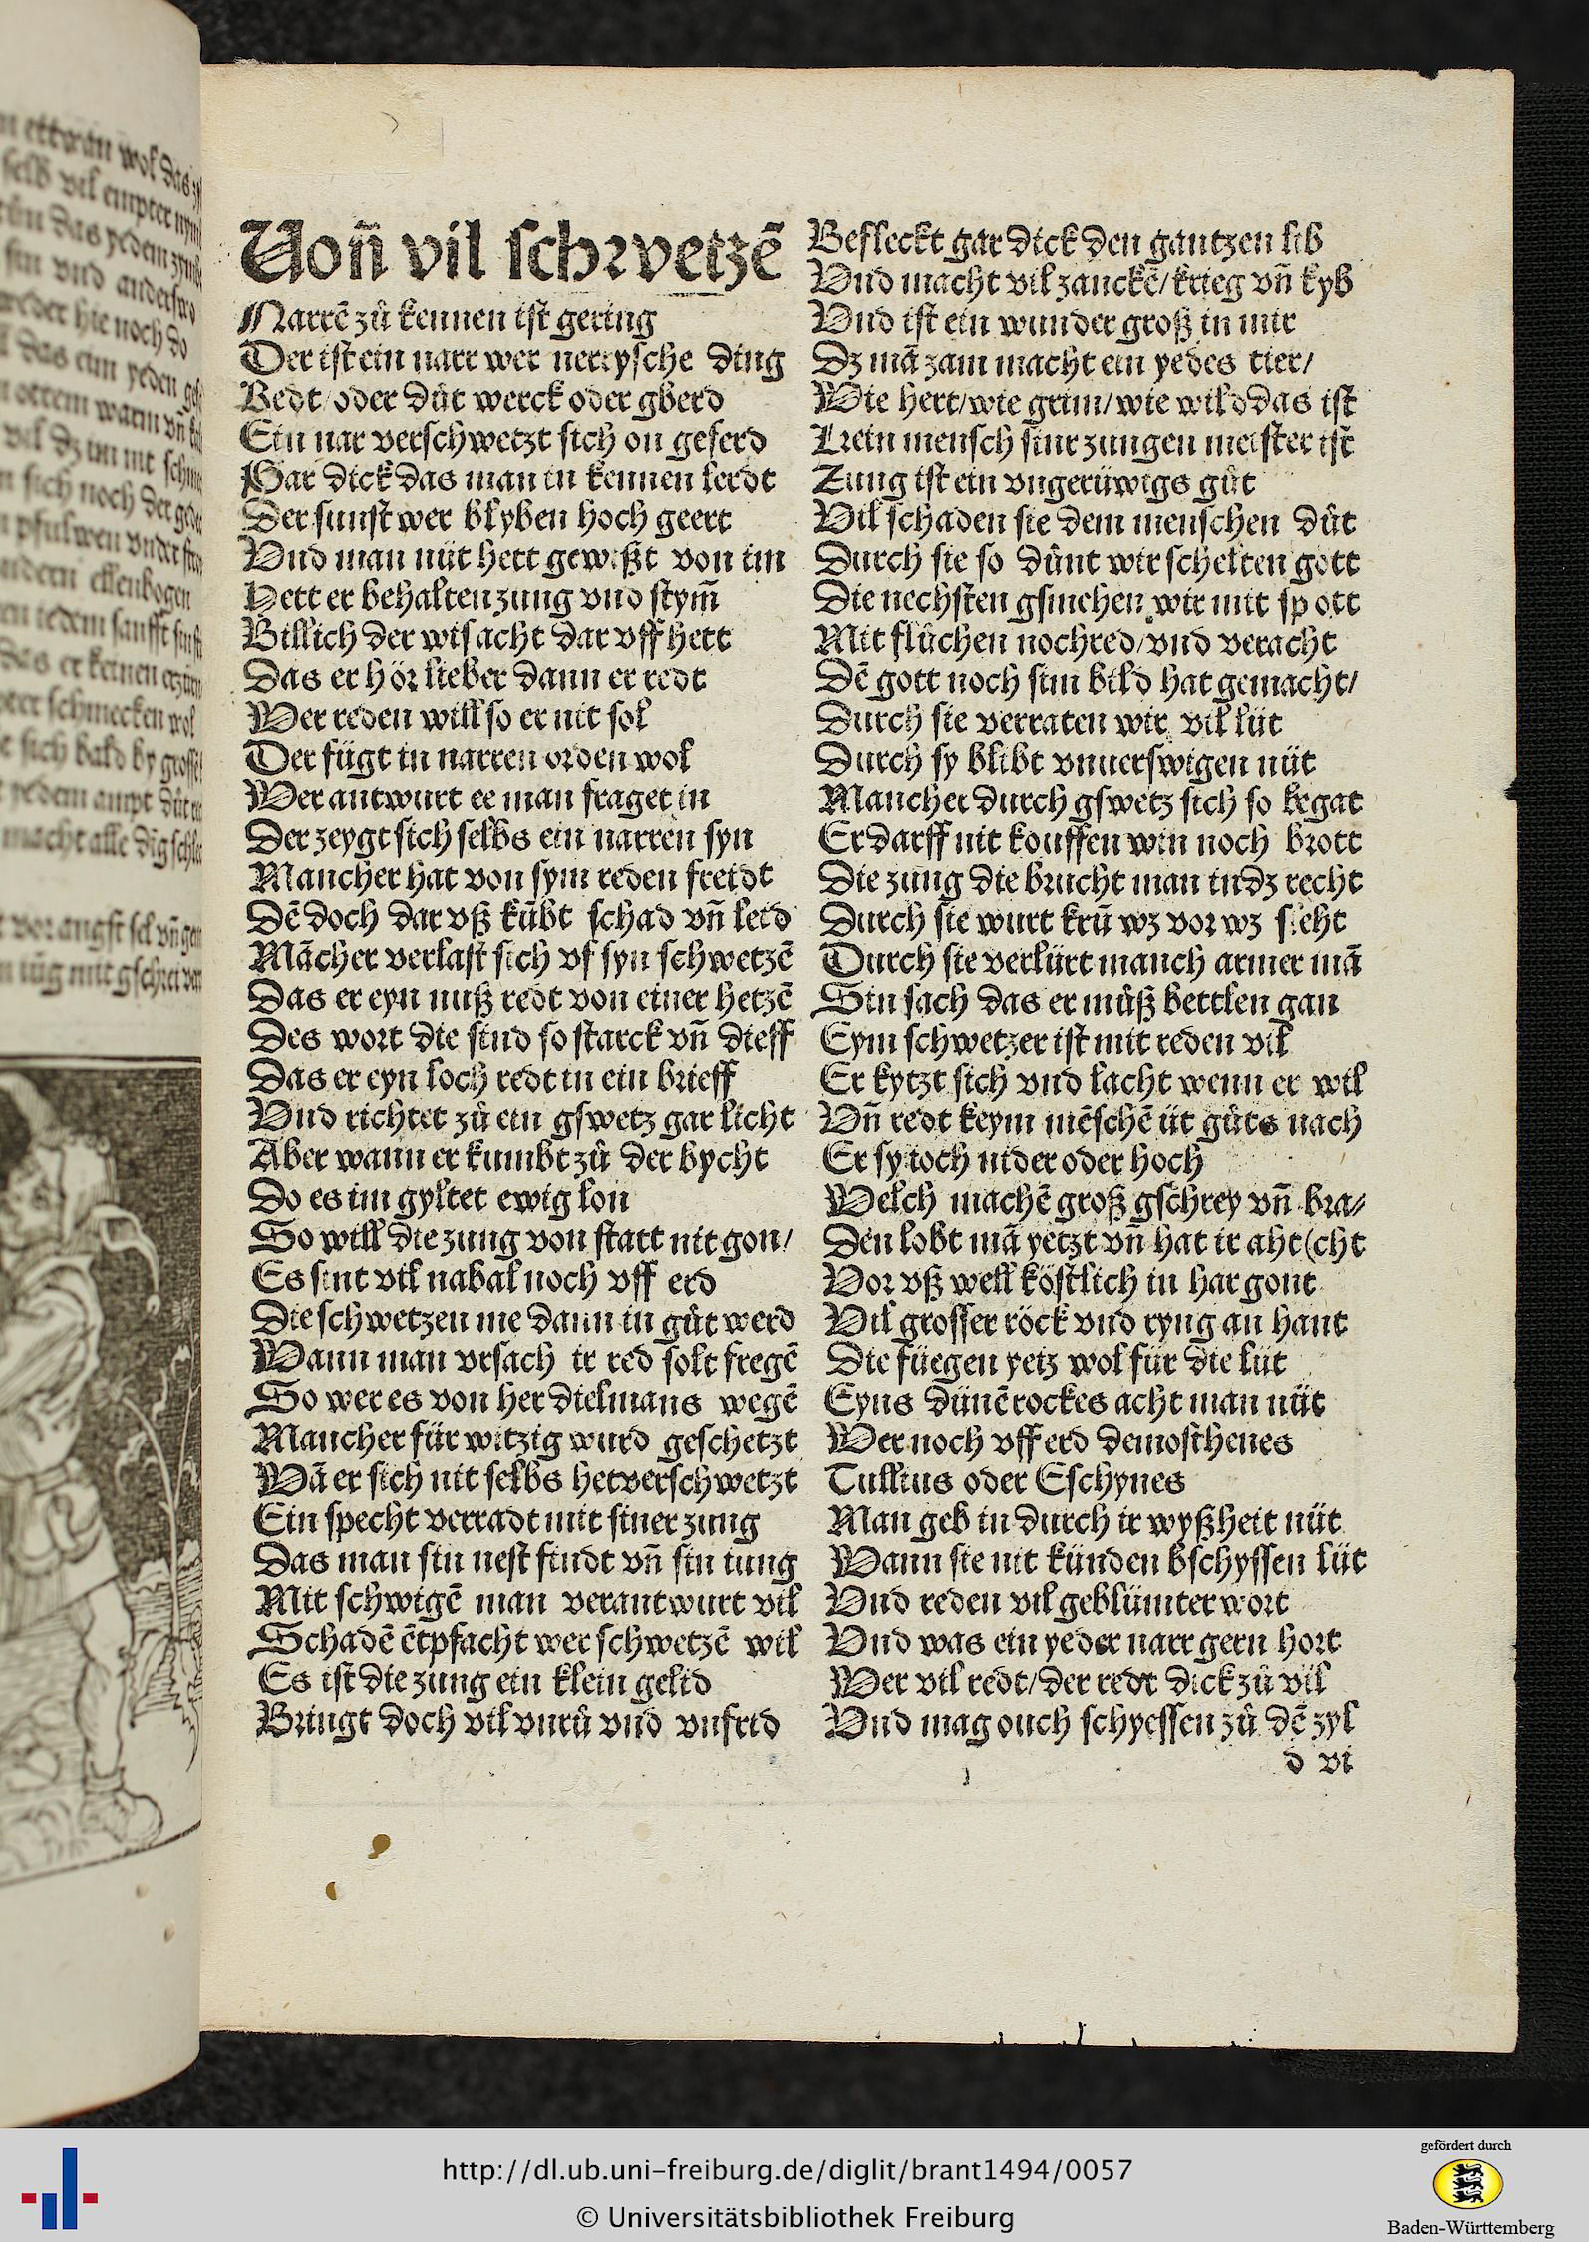 Uon̄ vil schwetzē
Narrē zů kennen ist gering
Der ist ein narr wer nerrysche ding
Redt/oder důt werck oder gberd
Ein nar verschwetzt sich on geferd
Gar dick das man in kennen lerdt
Der sunst wer blyben hoch geert
Vnd man nüt hett gewißt von im
Hett er behalten zung vnd stym̄
Billich der wis acht dar vff hett
Das er hör lieber dann er redt
Wer reden will so er nit sol
Der fügt in narren orden wol
Wer antwurt ee man fraget in
Der zeygt sich selbs ein narren syn
Mancher hat von sym reden freidt
Dē doch dar vß kūbt schad vn̄ leid
Mācher verlast sich vf syn schwetzē
Das er eyn nuß redt von einer hetzē
Des wort die sind so starck vn̄ dieff
Das er eyn loch redt in ein brieff
Vnd richtet zů ein gswetz gar licht
Aber wann er kumbt zů der bycht
Do es im gyltet ewig lon
So will die zung von statt nit gon/
Es sint vil nabal noch vff erd
Die schwetzen me dann in gůt werd
Wann man vrsach ir red solt fregē
So wer es von her dielmans wegē
Mancher für witzig wurd geschetzt
Wā er sich nit selbs het verschwetzt
Ein specht verradt mit siner zung
Das man sin nest findt vn̄ sin iung
Mit schwigē man verantwurt vil
Schadē ētpfacht wer schwetzē wil
Es ist die zung ein klein gelid
Bringt doch vil vnrů vnd vnfrid
Befleckt gar dick den gantzen lib
Vnd macht vil zanckē/krieg vn̄ kyb
Vnd ist ein wunder groß in mir
Dz mā zam macht ein yedes tier/
Wie hert/wie grim/wie wild das ist
Kein mensch sinr zungen meister ist
Zung ist ein vngerüwigs gůt
Vil schaden sie dem menschen důt
Durch sie so důnt wir schelten gott
Die nechsten gsmehen wir mit spott
Mit flůchen nochred/vnd veracht
Dē gott noch sim bild hat gemacht/
Durch sie verraten wir vil lüt
Durch sy blibt vnuerswigen nüt
Mancher durch gswetz sich so begat
Er darff nit kouffen win noch brott
Die zung die brucht man in dz recht
Durch sie wurt krū wz vor wz sleht
Durch sie verlürt manch armer mā
Sin sach das er můß bettlen gan
Eym schwetzer ist mit reden vil
Er kytzt sich vnd lacht wenn er wil
Vn̄ redt keym mēschē üt gůts nach
Er sy ioch nider oder hoch
Welch machē groß gschrey vn̄ bra/
Den lobt mā yetzt vn̄ hat ir aht(cht
Vor vß well köstlich in har gont
Vil grosser röck vnd ryng an hant
Die füegen yetz wol für die lüt
Eyns dünē rockes acht man nüt
Wer noch vff erd demosthenes
Tullius oder Eschynes
Man geb in durch ir wyßheit nüt
Wann sie nit künden bschyssen lüt
Vnd reden vil geblümter wort
Vnd was ein yeder narr gern hort
Wer vil redt/der redt dick zů vil
Vnd mag ouch schyessen zů dē zyl
d vi
http://dl.ub.uni-freiburg.de/diglit/brant1494/0057
© Universitätsbibliothek Freiburg
gefördert durch
Baden-Württemberg